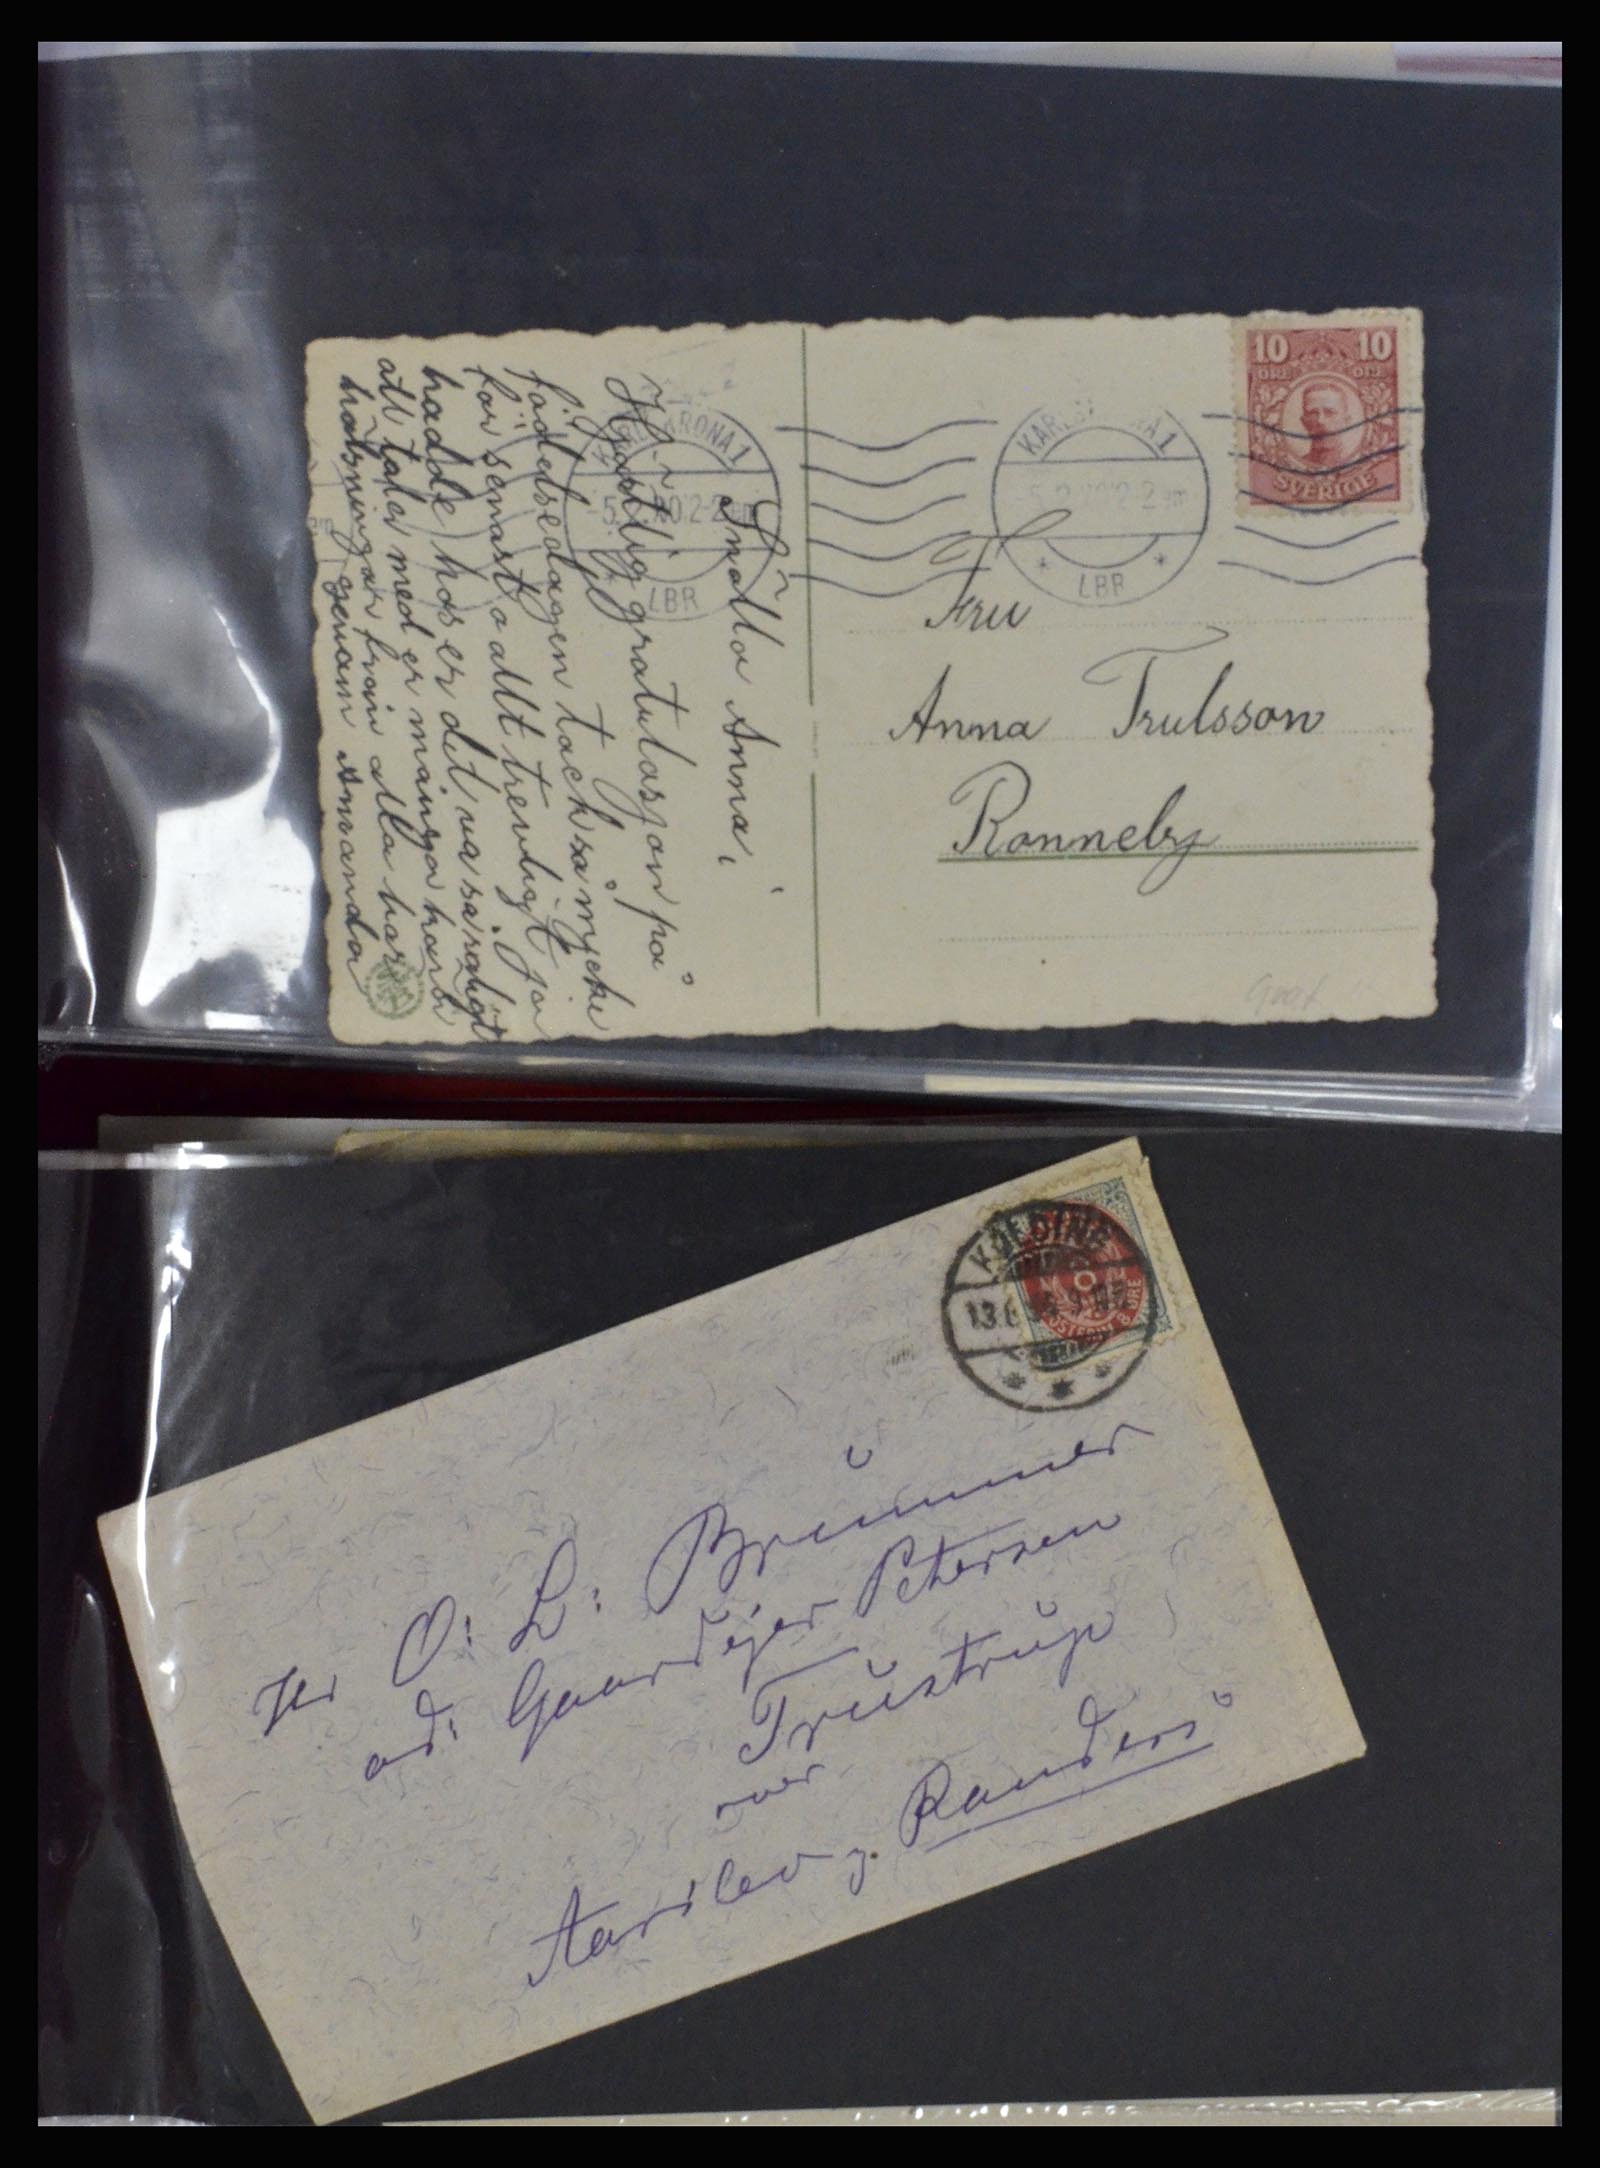 10 10
ÖRE ÖRE
SVERIGE
KARLSKRONA 1
-5.2.20 2-2 em
LBR
KARLSKRONA 1
-5.2.20 2-2 em
LBR
Fru
Anna Trulsson
Ronneby
Snälla Anna,
Hjärtlig gratulasjon på
födelsedagen tack så mycke
för senast o allt trevligt jon
hadde hos er det va så roligt
att tala med er många
hälsningar från alla här
genom Amanda
KOLDING
13.6
8
POSTFRIM. 8 ØRE
Hr O: L: Brummer
ad: Gaardejer Petersen
Trustrup
over
Aarslev p. Randers